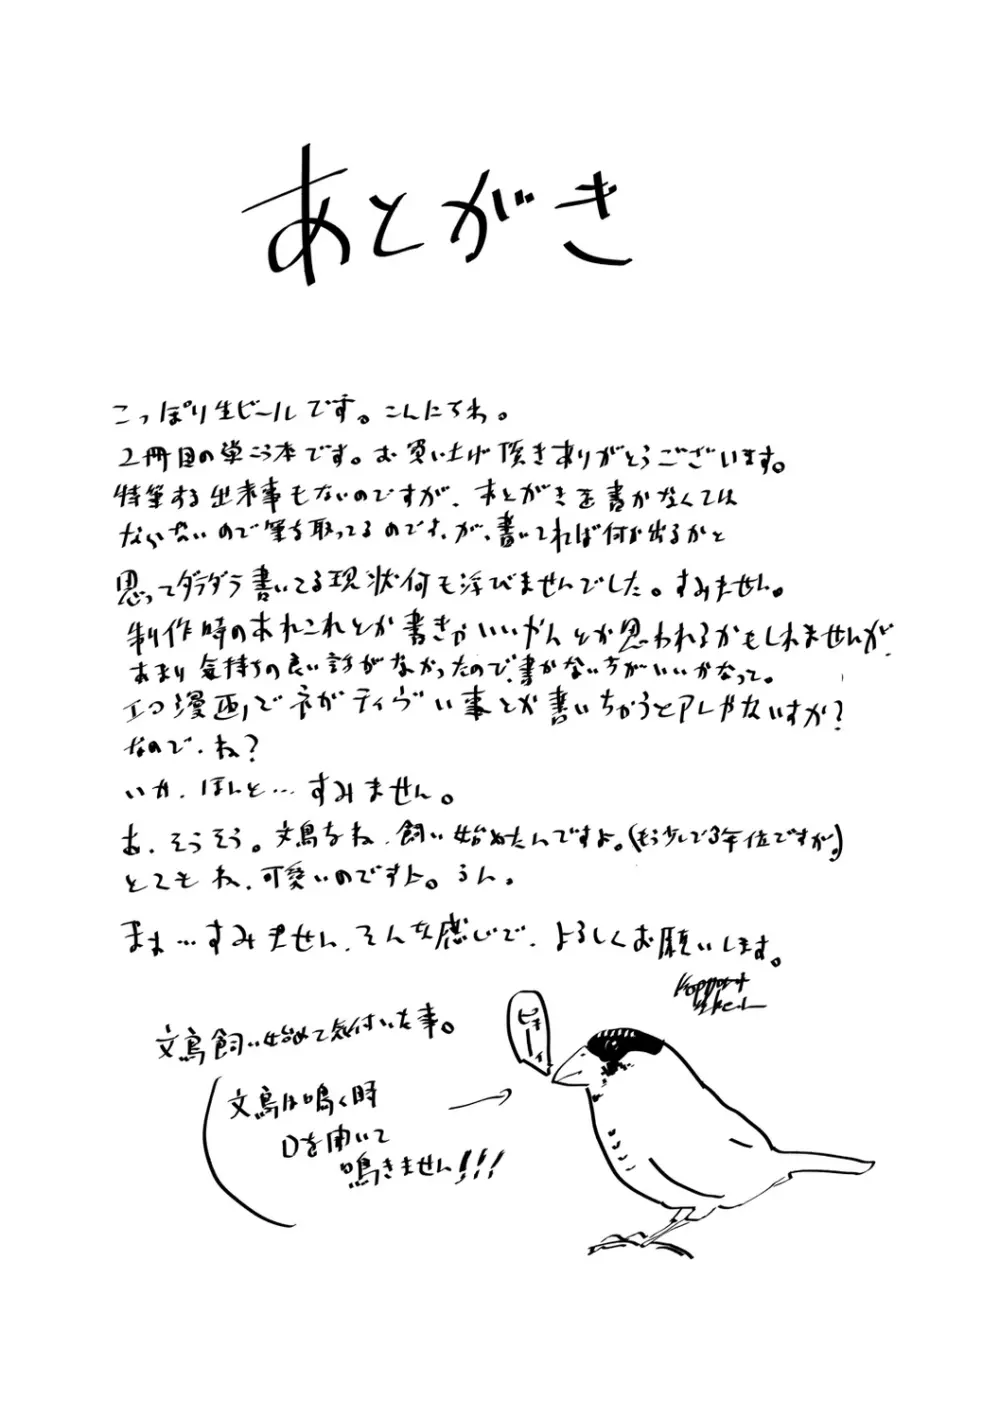 あとがき
こっぽり生ビールです。こんにちわ。
2冊目の単こう本です。お買い上げ頂きありがとうございます。
特筆する出来事もないのですが、あとがきを書かなくては
ならないので筆を取ってるのです、が、書いてれば何か出るかと
思ってダラダラ書いてる現状何も浮びませんでした。すみません。
制作時のあれこれとか書きゃいいやんとか思われるかもしれませんが、
あまり気持ちの良い話がなかったので、書かない方がいいかなって。
エロ漫画でネガティヴい事とか書いちゃうとアレじゃないすか?
なので、ね?
いや、ほんと…すみません。
あ、そうそう。文鳥をね、飼い始めたんですよ。(もう少しで3年位ですが。)
とてもね、可愛いのですよ。うん。
まぁ…すみません、そんな感じで、よろしくお願いします。
文鳥飼い始めて気付いた事。
ピョーイ
文鳥は鳴く時
口を開いて
鳴きません!!!